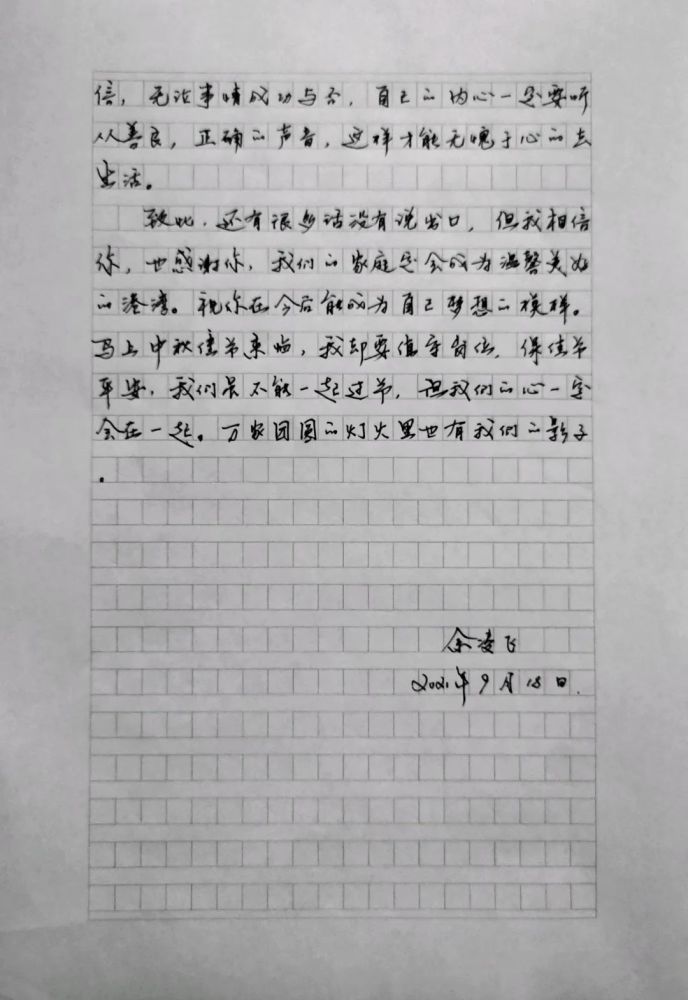 信，无论事情成功与否，自己的内心一定要听
从善良，正确的声音，这样才能无愧于心的去
生活。
致此，还有很多话没有说出口，但我相信
你，也感谢你，我们的家庭定会成为温馨美好
的港湾。祝你在今后能成为自己梦想的模样。
马上中秋佳节来临，我却要值守岗位，保佳节
平安，我们虽不能一起过节，但我们的心一定
会在一起。万家团圆的灯火里也有我们的影子
。
余凌飞
2021年9月18日.